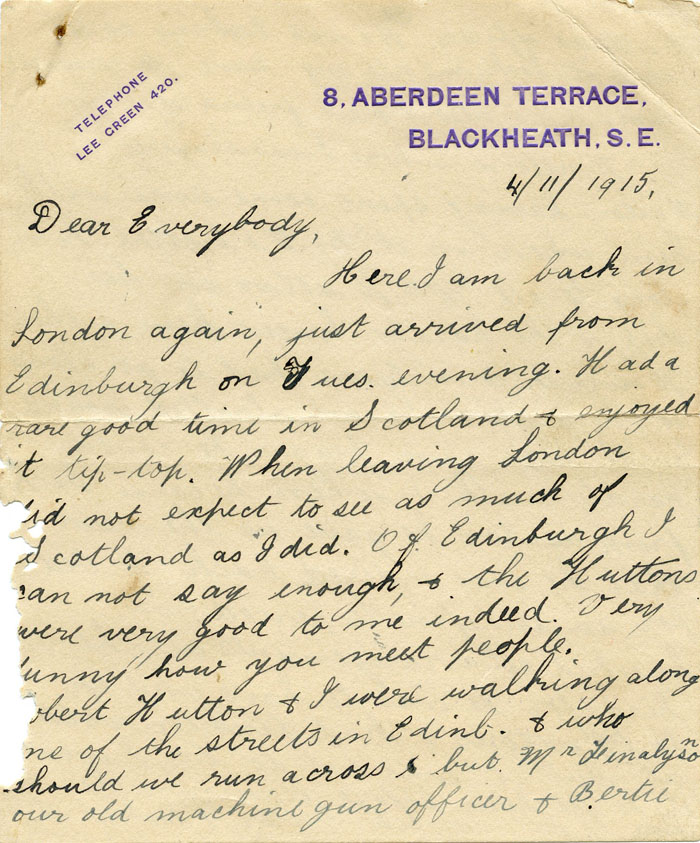 TELEPHONE
LEE GREEN 420.
8, ABERDEEN TERRACE,
BLACKHEATH, S. E.
4/11/1915,
Dear Everybody,
Here I am back in
London again, just arrived from
Edinburgh on Tues. evening. Had a
rare good time in Scotland & enjoyed
it tip-top. When leaving London
did not expect to see as much of
Scotland as I did. Of Edinburgh I
can not say enough, & the Huttons
were very good to me indeed. Very
funny how you meet people.
obert Hutton & I were walking along
ne of the streets in Edinb. & who
should we run across but Mr Finalyson
our old machine gun officer & Bertie